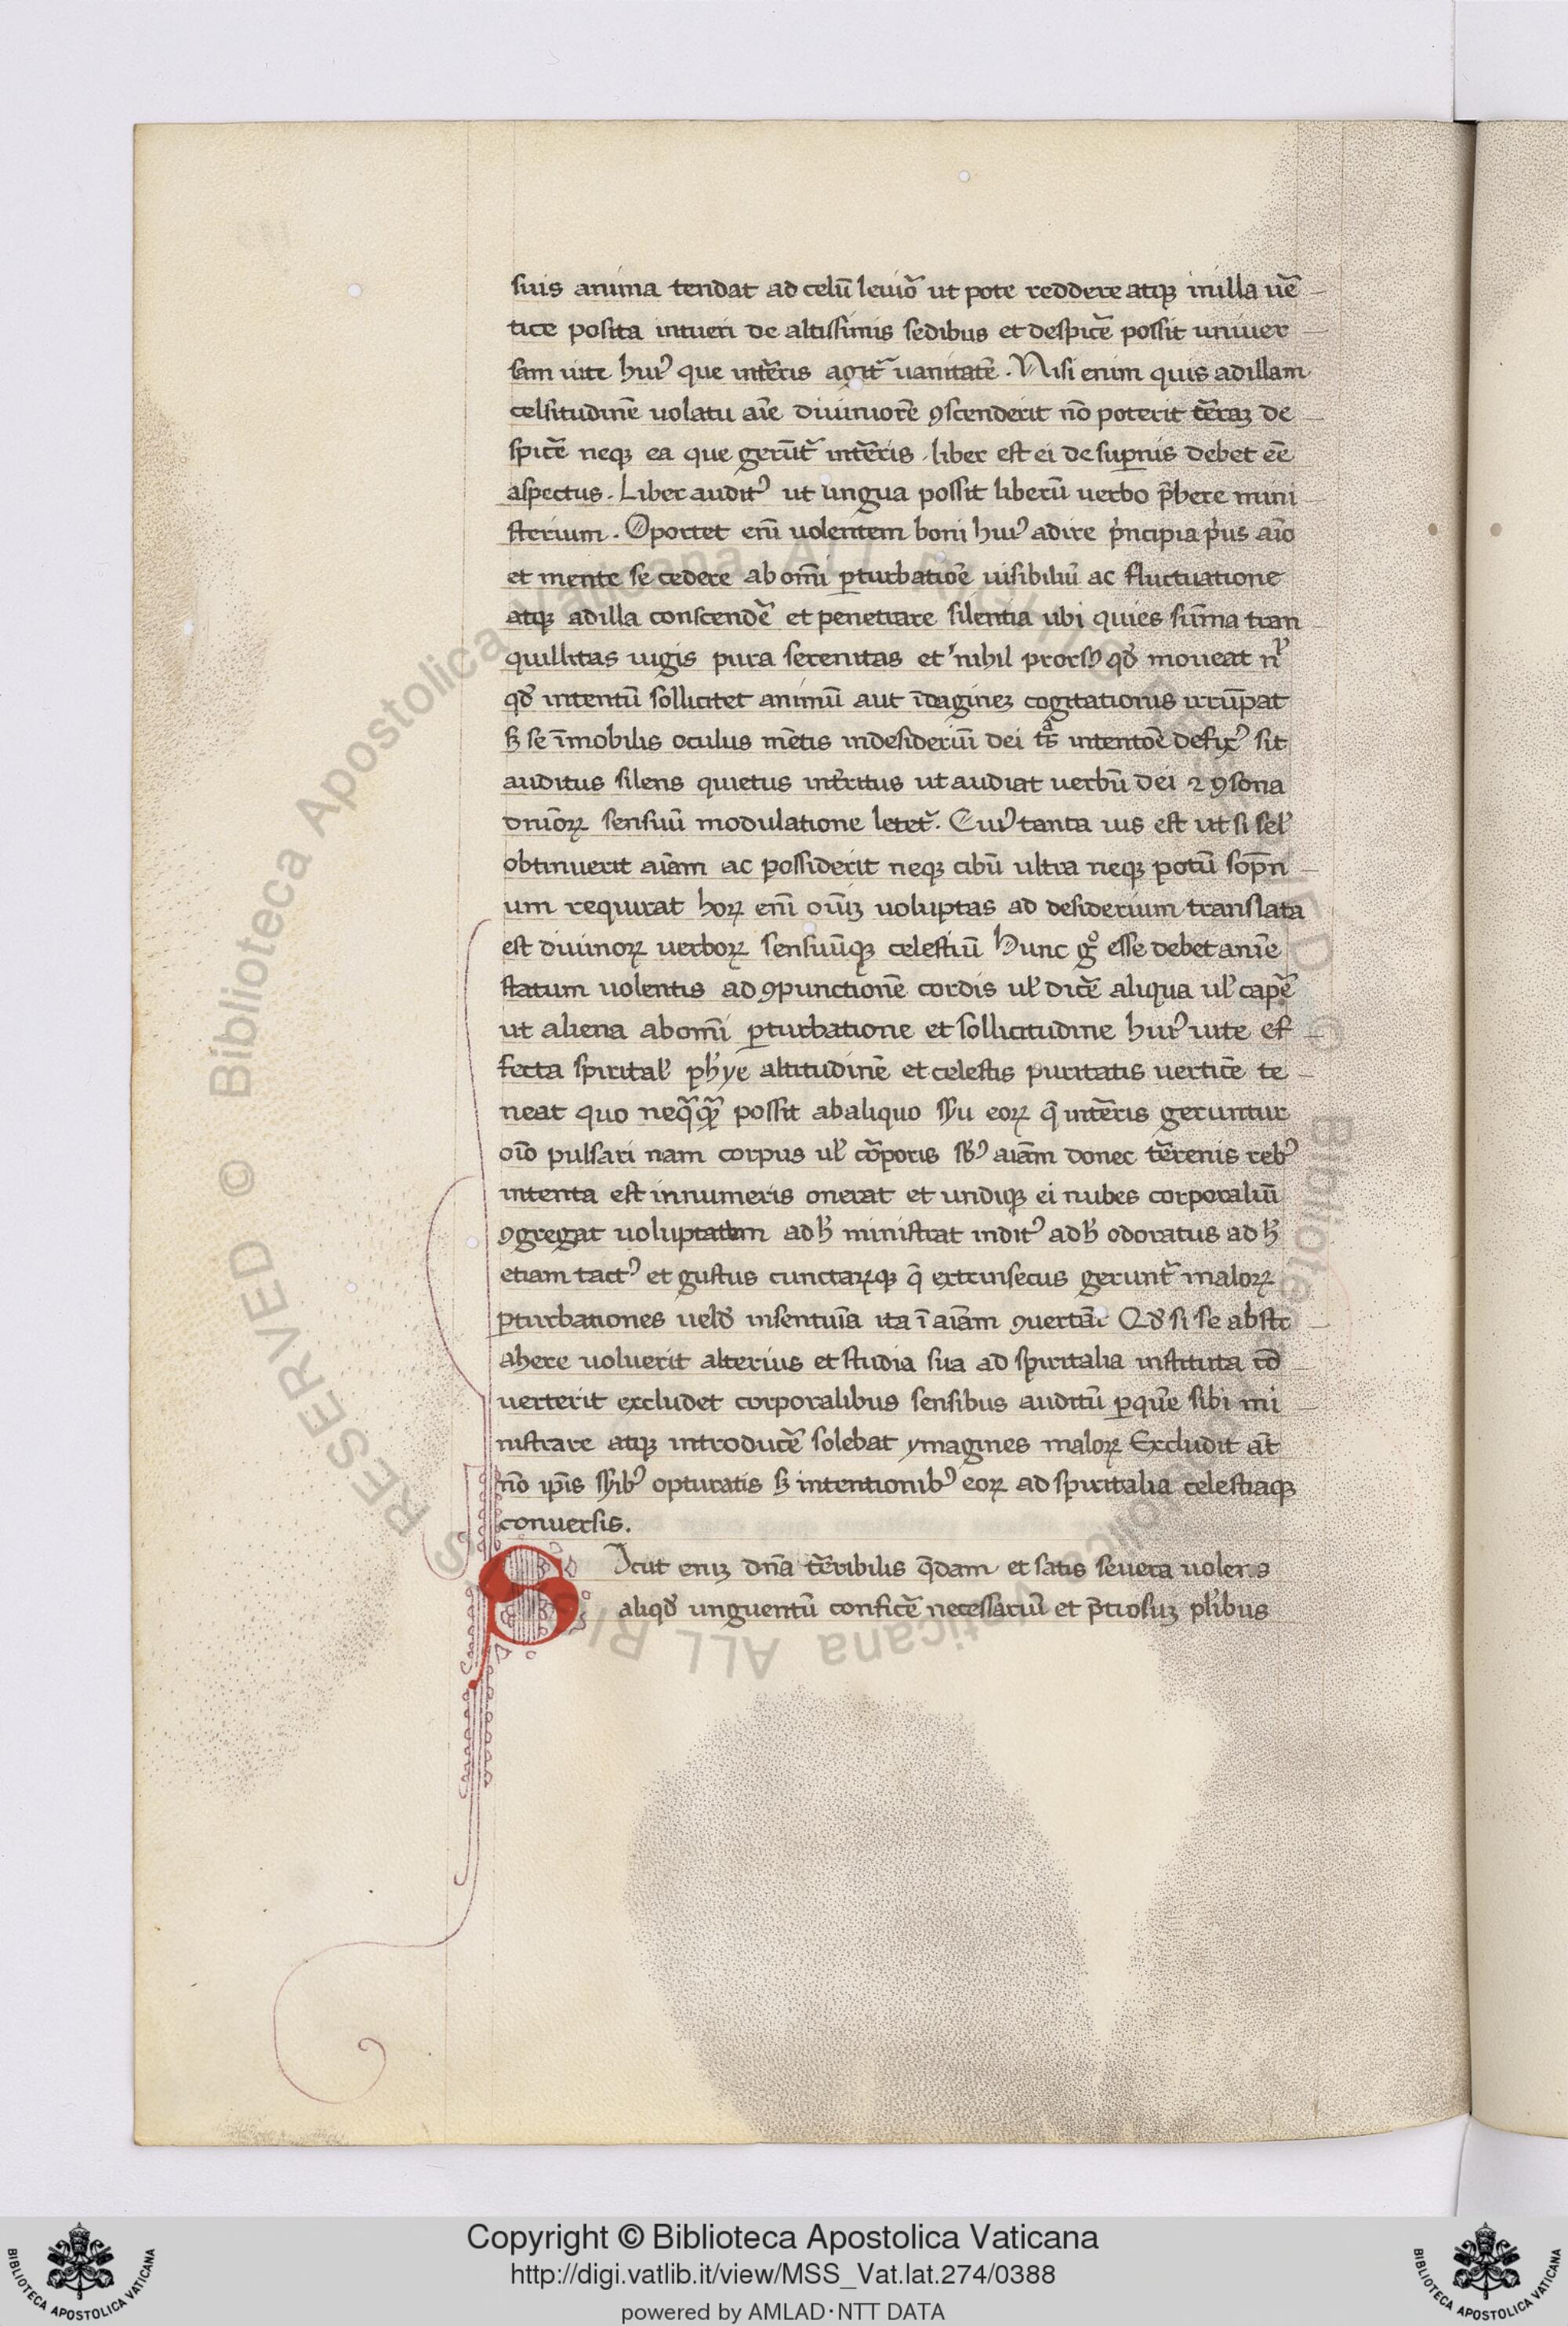 suis anima tendat ad celū leuiō ut pote reddere atqꝫ inilla uẽ
tice posita intueri de altissimis sedibus et despicẽ possit univer
sam uite huiꝰ que intẽris agit᷑ uanitatẽ. Nisi enim quis adillam
celsitudinẽ uolatu aīe diuiniorẽ ꝯscenderit nō poterit tẽraꝫ de
spicẽ neqꝫ ea que gerūt᷑ intẽris. liber est ei de suꝑnis debet ēē
aspectus. Liber auditꝰ ut lingua possit liberū uerbo p̄bere mini
sterium. Oportet enī uolentem boni huiꝰ adire pͥncipia pͥus aīo
et mente se cedere ab omī ꝑturbatiōe uisibiliū ac fluctuatione
atqꝫ adilla conscendẽ et penetrare silentia ubi quies sūma tran
quillitas iugis pura serenitas et nihil prorsꝰ qđ moueat nͥ
qđ intentū sollicitet animū aut īdagineꝫ cogitationis irrūpat
sꝫ se īmobilis oculus mētis indesideriū dei tᷓs intentōe defixꝰ sit
auditus silens quietus intẽritus ut audiat uerbū dei ⁊ ꝯsona
diuīoꝝ sensuū modulatione letet᷑. Cuiꝰ tanta uis est ut si sel̕
obtinuerit aīam ac possiderit neqꝫ cibū ultra neqꝫ potū sop̄n
um requirat hoꝝ enī oīuꝫ uoluptas ad desiderium translata
est diuinoꝝ uerboꝝ sensuūqꝫ celestiū Hunc gͦ esse debet anīe
statum uolentis ad ꝯpunctionē cordis ul̕ dicẽ aliqua ul̕ capẽ
ut aliena ab omī ꝑturbatione et sollicitudine huiꝰ uite ef
fecta spirital̕ ph̕ye altitudinē et celestis puritatis uerticē te
neat quo neqᷓqᷓ possit ab aliquo ssu eoꝝ q̄ intẽris geruntur
oīo pulsari nam corpus ul̕ cōporis sbꝰ aīam donec tẽrenis rebꝰ
intenta est innumeris onerat et undiqꝫ ei nubes corporaliū
ꝯgregat uoluptatum adh̕ ministrat inditꝰ adh̕ odoratus ad h̕
etiam tactꝰ et gustus cunctaꝝqꝫ q̄ extrinsecus gerunt᷑ maloꝝ
ꝑturbationes uelđ insentuīa ita ī aīam ꝯuertāt Qđ si se abstr
ahere uoluerit alterius et studia sua ad spiritalia instituta cō
uerterit excludet corporalibus sensibus auditū ꝑquē sibi mi
nistrare atqꝫ introducẽ solebat ymagines maloꝝ Excludit aūt
nō ip̄is ssibꝰ opturatis sꝫ intentionibꝰ eoꝝ ad spiritalia celestiaqꝫ
conuersis.
SIcut eniꝫ dn̄a tẽribilis q̄dam et satis seuera uolens
aliqđ unguentū conficẽ necessariū et p̄tiosuꝫ pl̕ibus
Copyright © Biblioteca Apostolica Vaticana
http://digi.vatlib.it/view/MSS_Vat.lat.274/0388
powered by AMLAD·NTT DATA